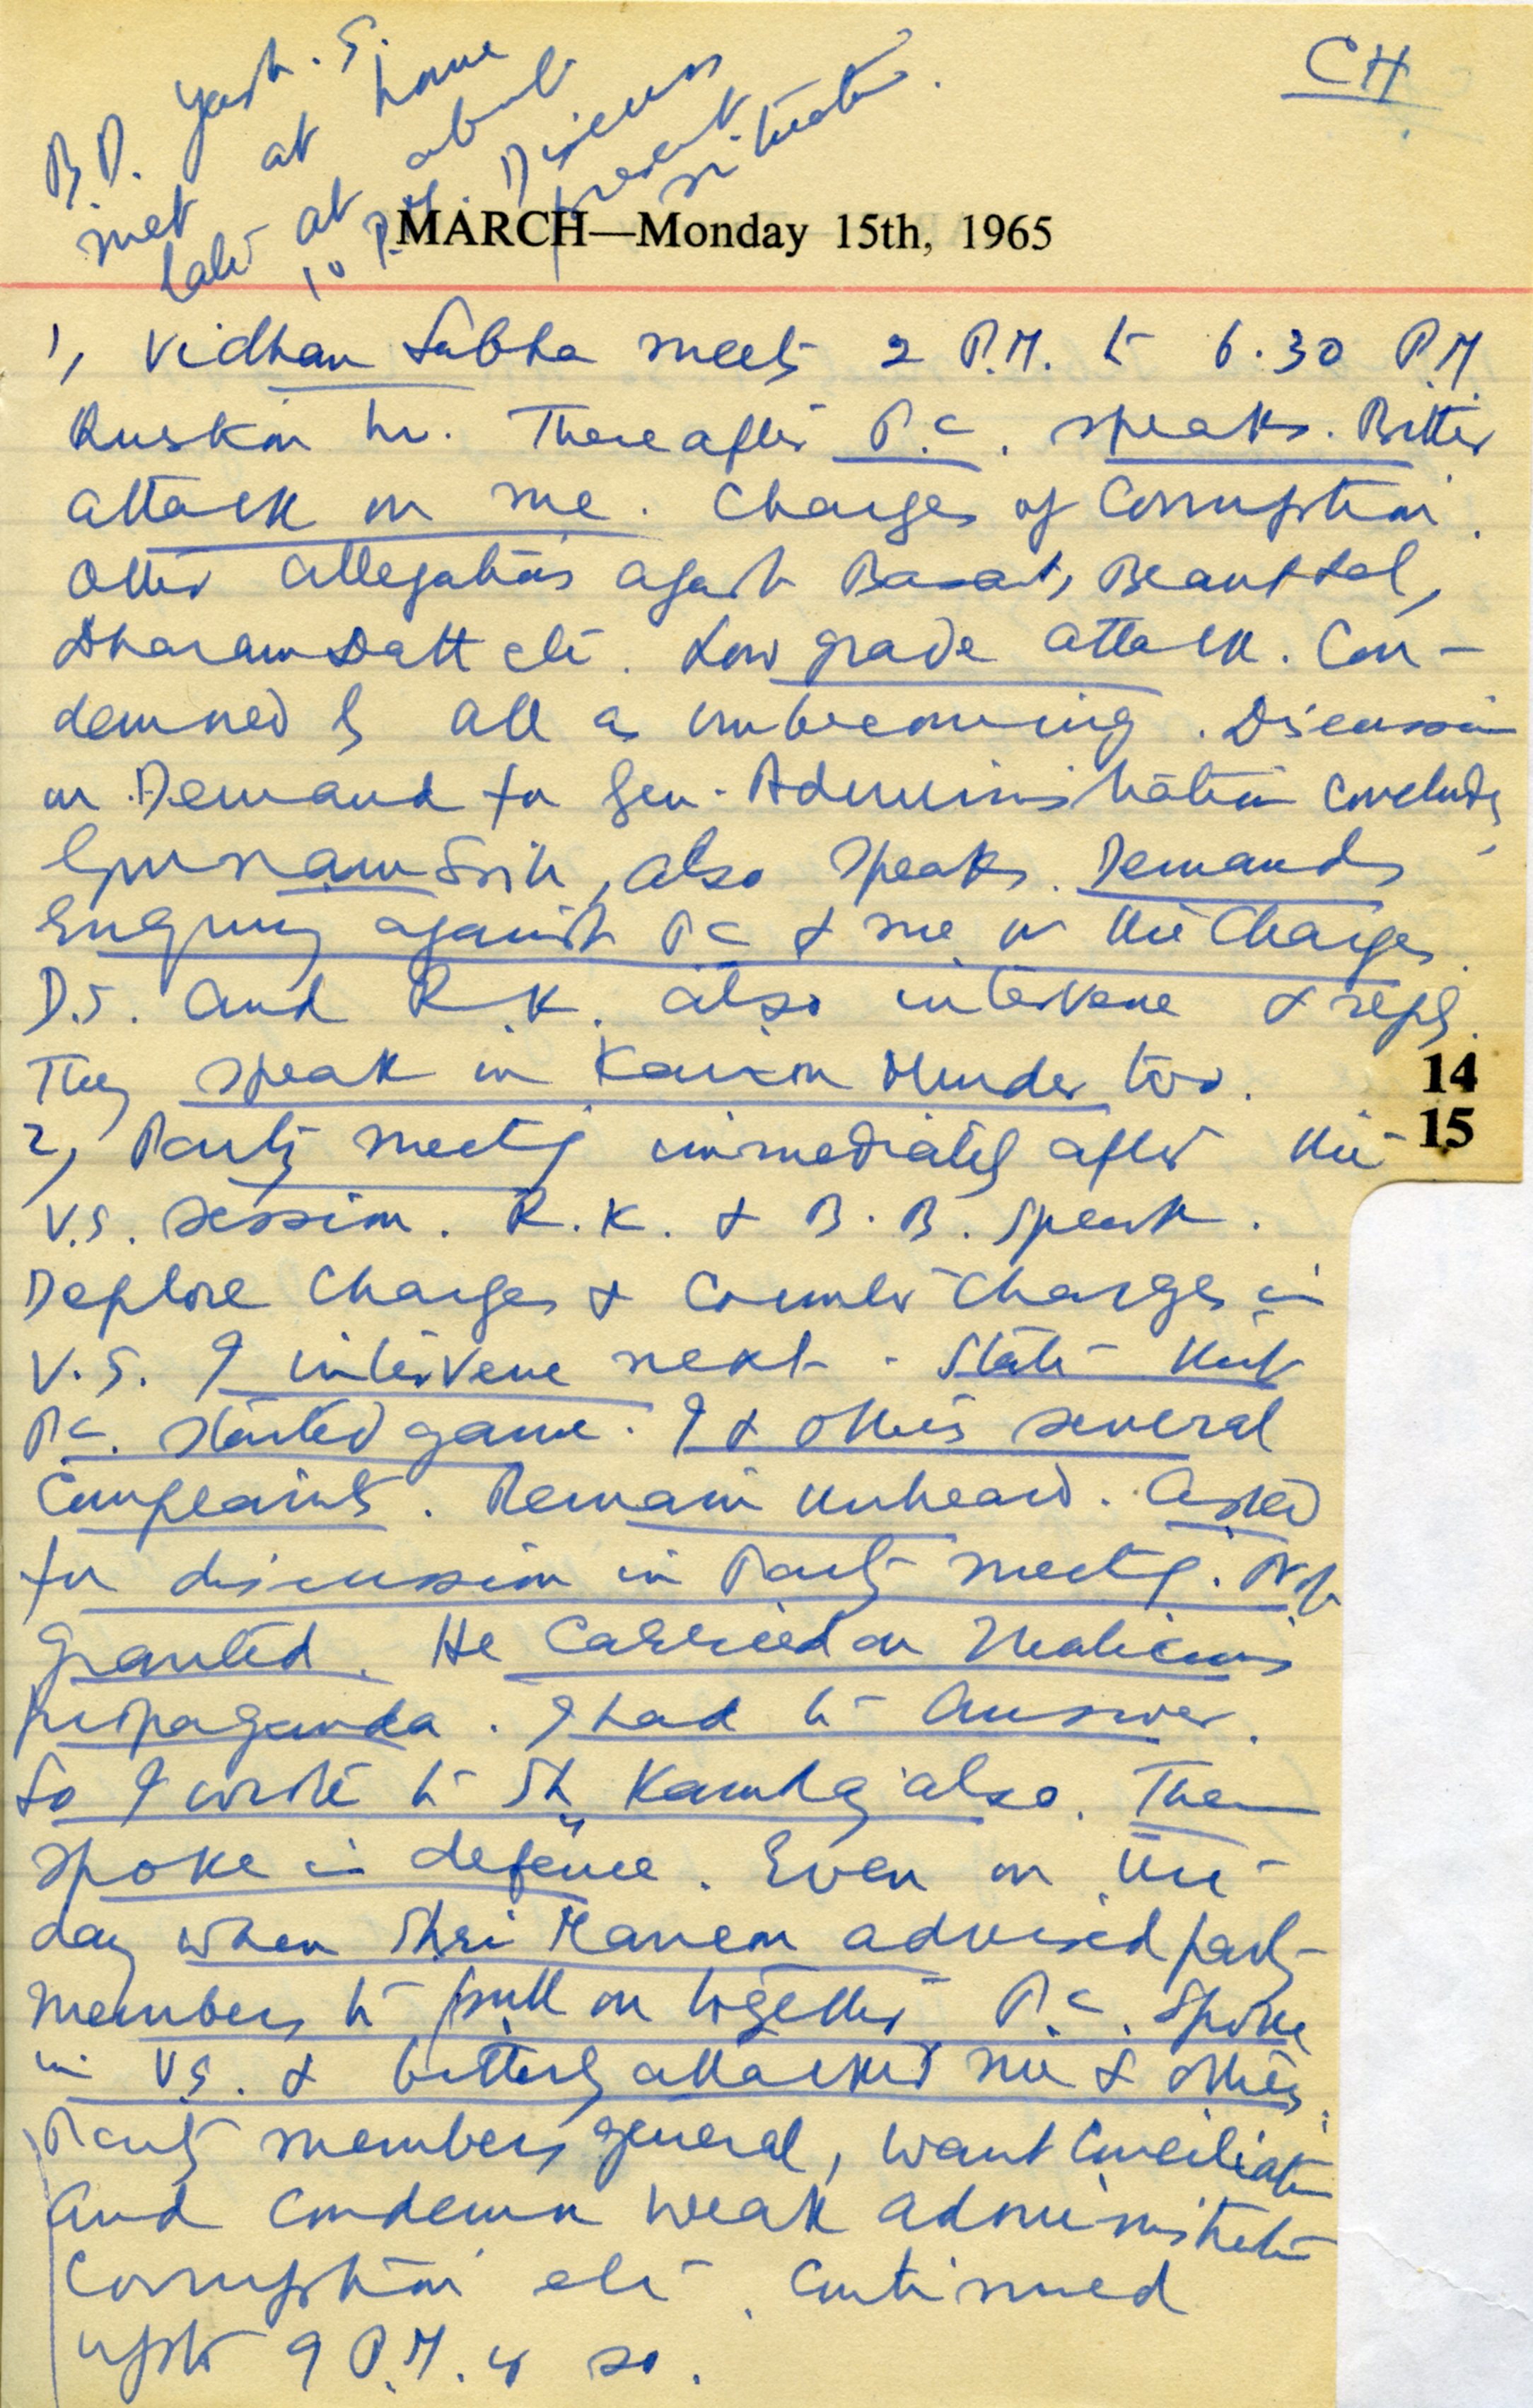 CH
B.D. Yash. S.
met at home
late at about
10 P.M. Discuss
present
situation.
MARCH—Monday 15th, 1965
1, Vidhan Sabha meets 2 P.M. to 6.30 P.M
Question hr. Thereafter P.C. speaks. Bitter
attack on me. Charges of Corruption.
Other allegations against Basant, Beant Lal,
Dharam Datt etc. Low grade attack. Con-
demned by all as unbecoming. Discussion
on Demand for Gen. Administration concludes,
Gurnam Singh, also speaks. Demands
Enquiry against PC & me on the Charges.
D.S. and R.K. also intervene & reply.
They speak on Kairon Murder too.
14
2, Party meeting immediately after the
15
V.S. session. R.K. & B.B. speak.
Deplore Charges & Counter Charges in
V.S. I intervene next. State that
P.C. started game. I & others several
Complaints. Remain unheard. Asked
for discussion in Party meeting. Not
granted. He carried on malicious
propaganda. I had to answer.
So I wrote to Sh. Kamraj also. Then
spoke in defence. Even on the
day when Shri Manem advised party
members to pull on together P.C. spoke
in V.S. & bitterly attacked me & others.
Party members general, want Conciliation
and Condemn weak administration
Corruption etc. Continued
upto 9 P.M. or so.